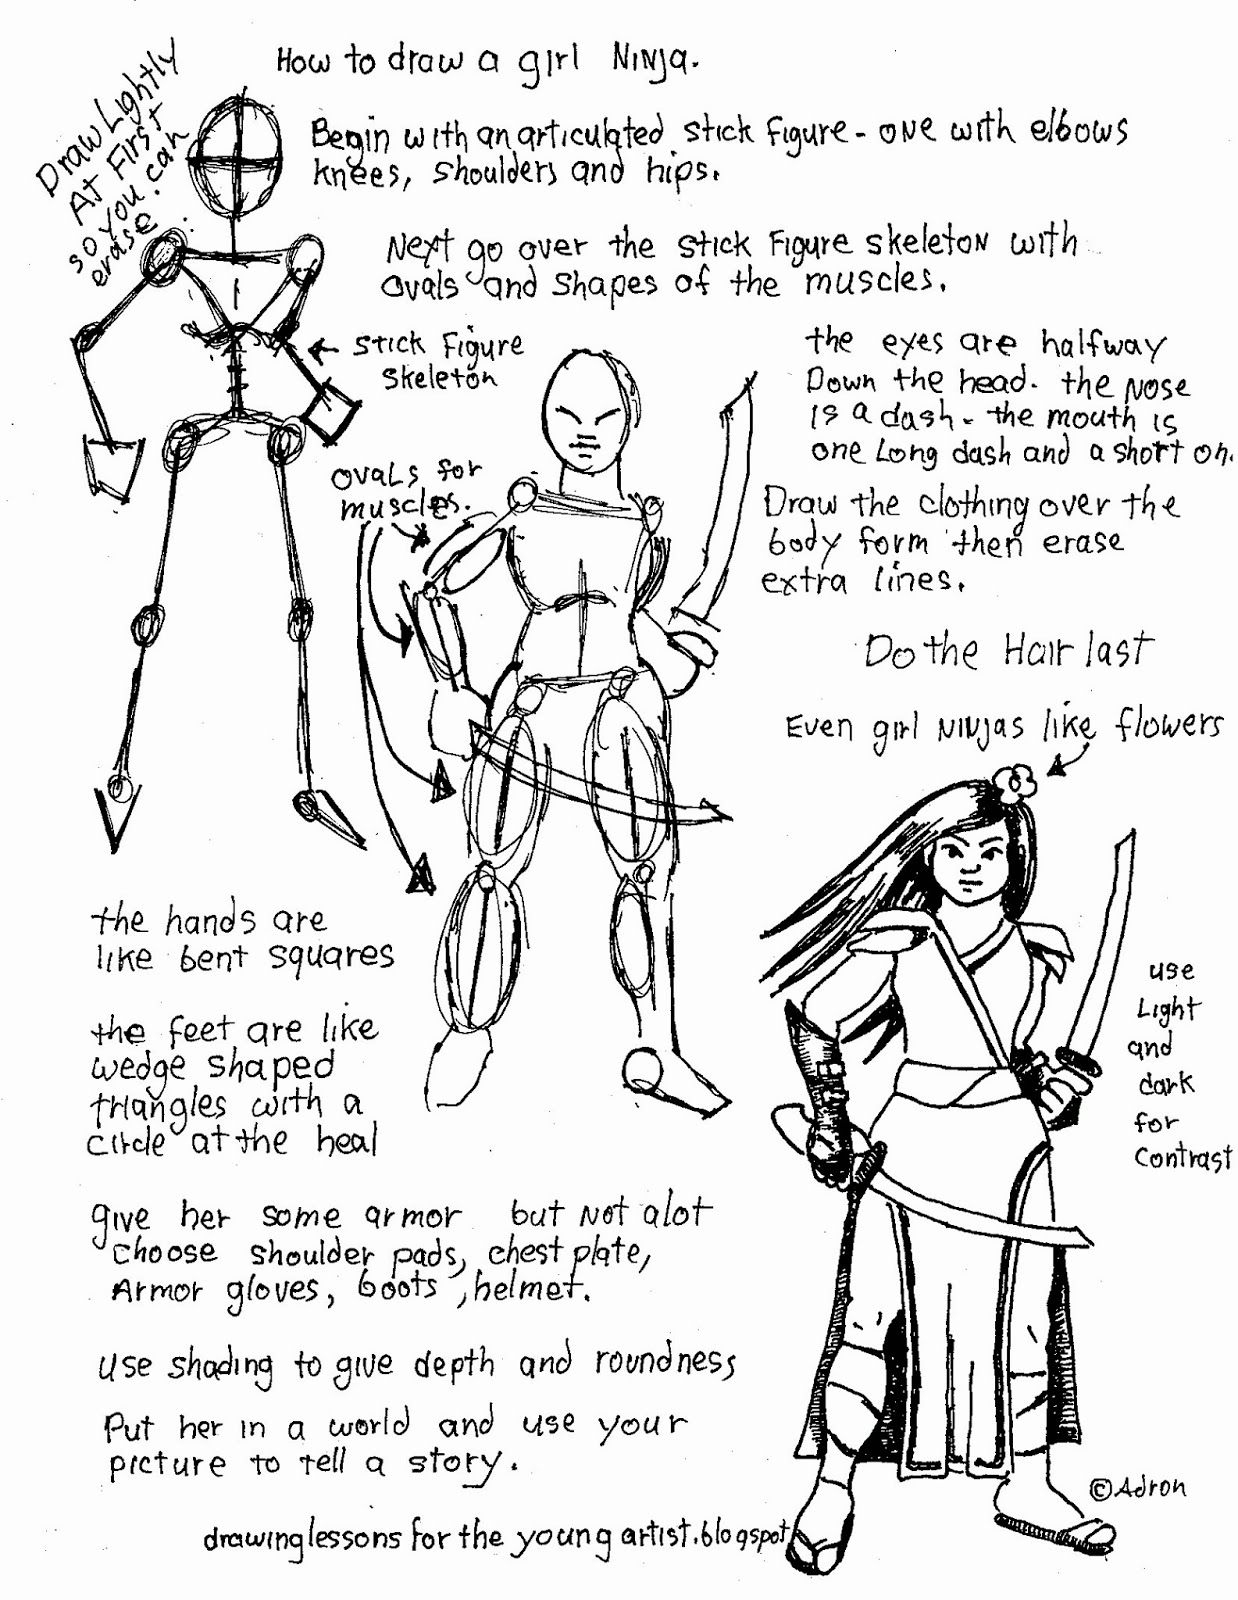 How to draw a girl Ninja.
Draw Lightly
At First
so you can
erase.
Begin with an articulated stick figure - one with elbows
knees, shoulders and hips.
Next go over the stick figure skeleton with
ovals and shapes of the muscles.
stick figure
skeleton
the eyes are halfway
Down the head. the nose
is a dash - the mouth is
one long dash and a short on.
ovals for
muscles.
Draw the clothing over the
body form then erase
extra lines.
Do the Hair last
Even girl Ninjas like flowers
the hands are
like bent squares
the feet are like
wedge shaped
triangles with a
circle at the heal
use
Light
and
dark
for
contrast
give her some armor but not alot
choose shoulder pads, chest plate,
Armor gloves, boots, helmet.
use shading to give depth and roundness
Put her in a world and use your
picture to tell a story.
©Adron
drawinglessons for the young artist.blogspot